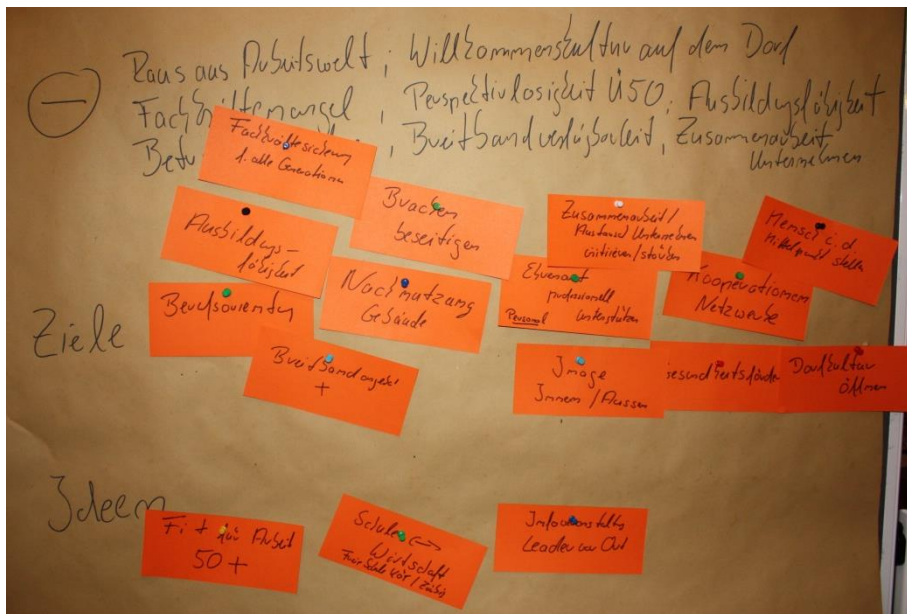 Raus aus Arbeitswelt ; Willkommenskultur auf dem Dorf
Fachkräftemangel , Perspektivlosigkeit Ü50, Ausbildungsfähigkeit
, Breitbandverfügbarkeit, Zusammenarbeit
Unternehmen
Fachkräftesicherung
f. alle Generationen
Brachen
beseitigen
Zusammenarbeit/
Austausch Unternehmen
initiieren/
Mensch i. d.
Mittelpunkt stellen
Ausbildungs-
fähigkeit
Nachnutzung
Gebäude
Ehrenamt
professionell
Personal unterstützen
Kooperationen
Netzwerke
Ziele
Breitbandangebot
+
Image
Innen / Aussen
esundheitsförde
Dorfkultur
öffnen
Ideen
Fit für Arbeit
50+
Schule <->
Wirtschaft
Leader vor Ort